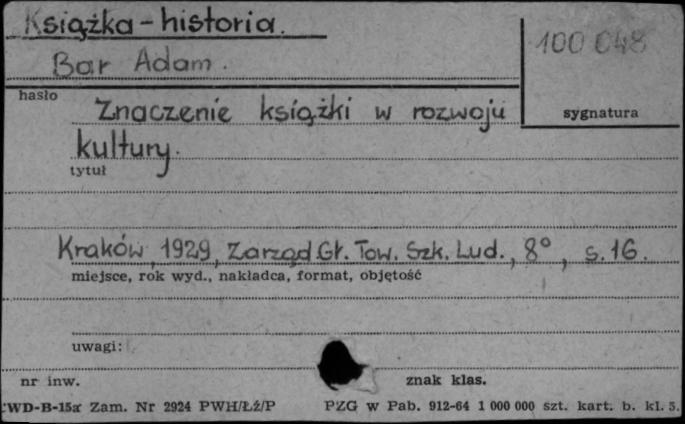 Książka - historia.
100 048
Bar Adam.
hasło
Znaczenie książki w rozwoju
sygnatura
kultury.
tytuł
Kraków, 1929, Zarząd Gł. Tow. Szk. Lud., 8°, s. 16.
miejsce, rok wyd., nakładca, format, objętość
uwagi:
nr inw. znak klas.
WD-B-15a Zam. Nr 2924 PWH/ŁŹ/P PZG w Pab. 912-64 1 000 000 szt. kart. b. kl. 5.